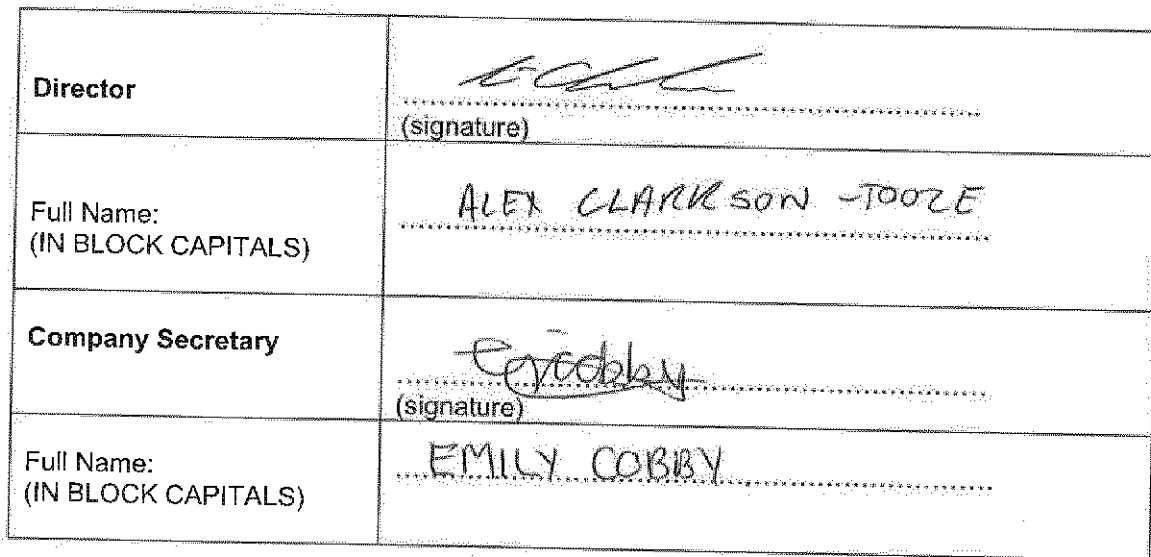 Director
(signature)
Full Name:
(IN BLOCK CAPITALS)
ALEX CLARKSON -TOOZE
Company Secretary
EJCobby
(signature)
Full Name:
(IN BLOCK CAPITALS)
EMILY COBBY